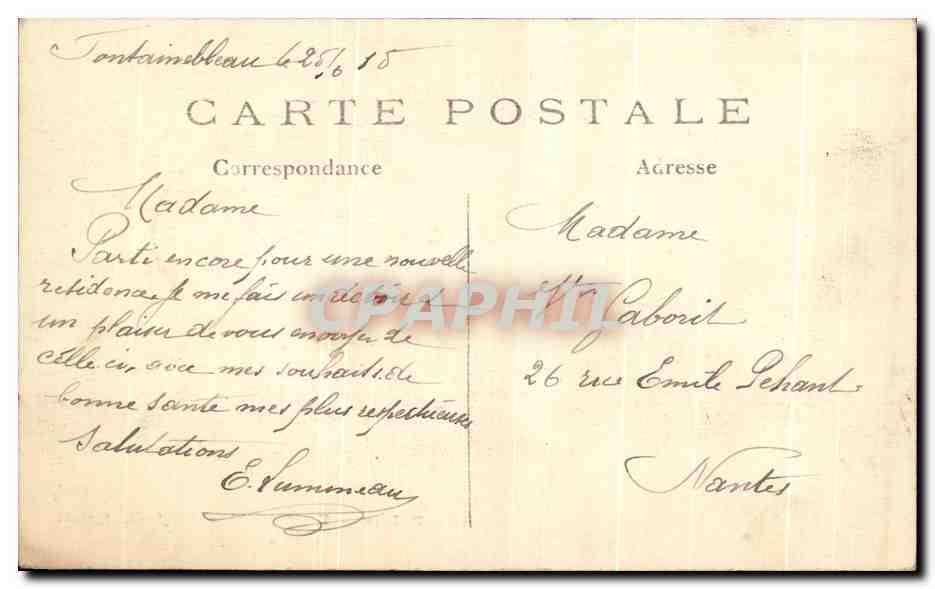 Fontainebleau le 25/6 15
CARTE POSTALE
Correspondance
Madame
Parti encore pour une nouvelle
residence, je me fais un devoir et
un plaisir de vous envoyer de
celle ci, avec mes souhaits de
bonne santé mes plus respectueuses
Salutations
E. Lumineau
Adresse
Madame
Vve Gaborit
26 rue Emile Pehant
Nantes
CPAPHIL